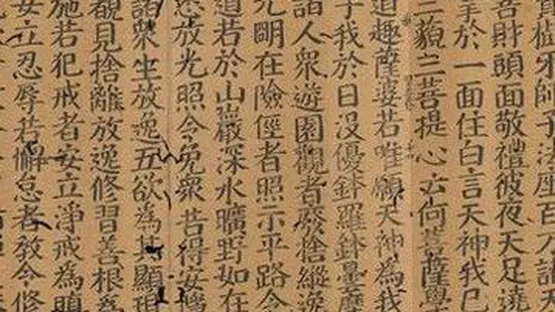 樹師子法座百万諸天
善財頭面敬禮彼夜天足遶
至於一面住白言天神我已
三藐三菩提心云何菩薩學
道趣薩婆若唯願天神為我
子我於日没優鉢羅鉢曇摩
諸人衆遊園觀者廢捨縱逸
光明在險徑者照示平路令
道若於山巖深水曠野如在
悉放光照令免衆苦得安隱
諸衆生放逸五欲為其顯現
覩見捨離放逸修習善根為
施若犯戒者安立淨戒為瞋
安立忍辱若懈怠者教令修